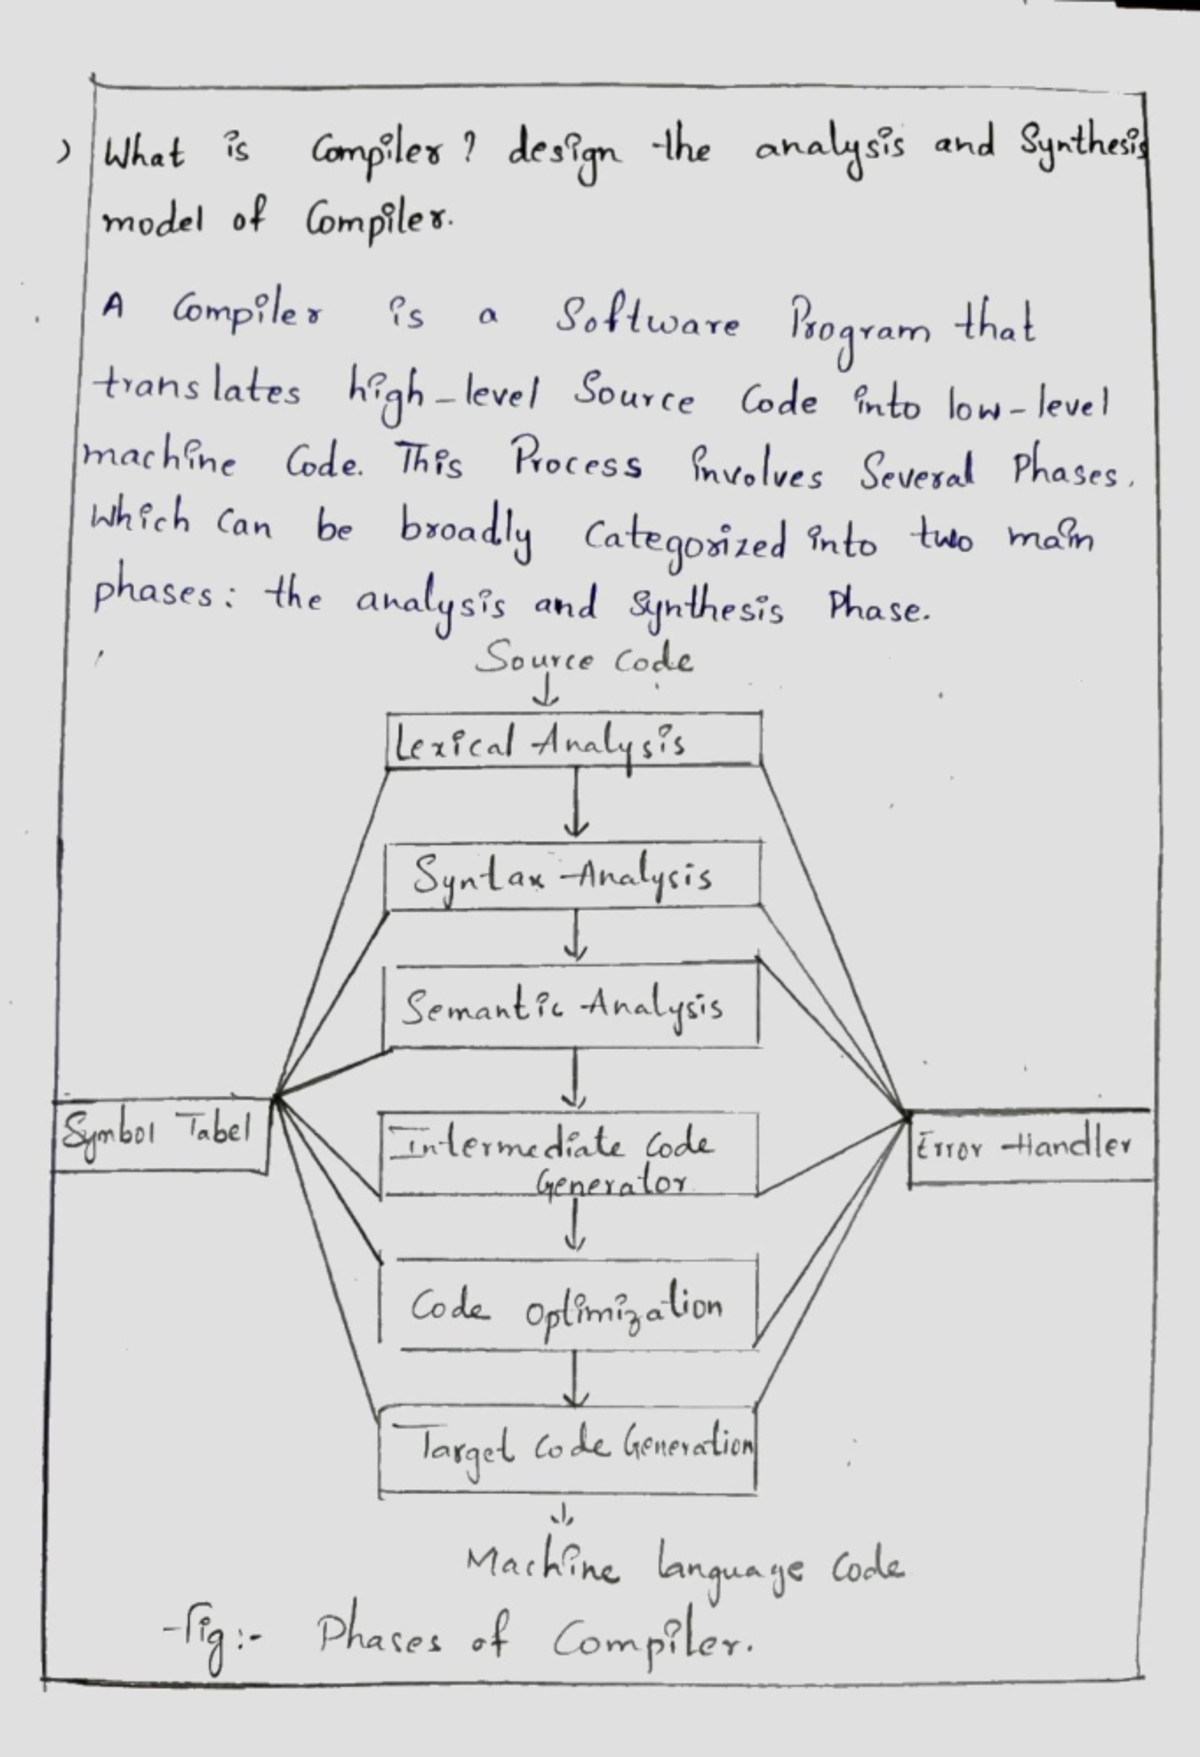 ) What is Compiler? design the analysis and Synthesis
model of Compiler.
A Compiler is a Software Program that
translates high-level Source Code into low-level
machine Code. This Process involves Several Phases.
Which can be broadly Categorized into two main
phases: the analysis and Synthesis Phase.
Source Code
Lexical Analysis
Syntax Analysis
Semantic Analysis
Symbol Tabel
Intermediate Code
Generator
Error Handler
Code Optimization
Target Code Generation
Machine language Code
Fig:- Phases of Compiler.